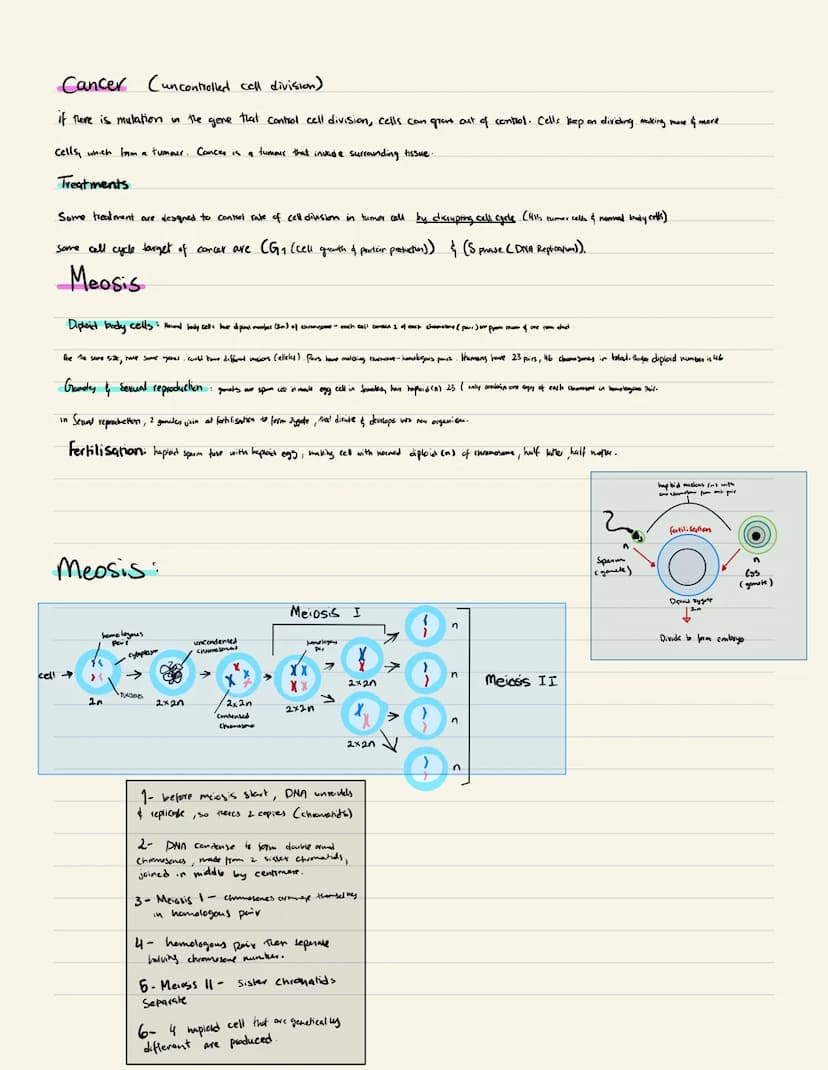 Cancer (uncontrolled cell division)
if there is mutation in the gene that control cell division, cells can grow out of control. Cells keep on dividing making more & more
cells, which form a tumour. Cancer is a tumour that invade surrounding tissue.
Treatments
Some treatment are designed to control rate of cell division in tumor cell by disrupting cell cycle. (kills tumor cells & normal body cells)
some cell cycle target of cancer are (G1 (cell growth & protein production)) & (S phase (DNA Replication)).
Meosis
Diploid body cells: Normal body cells have diploid number (2n) of chromosome - each cell contain 2 of each chromosome (pair) one from mum & one from dad
are the same size, have same genes. could have different versions (alleles). Pairs have matching chromosome - homologous pairs. Humans have 23 pairs, 46 chromosomes in total. diploid number is 46
& sexual reproduction: gametes are sperm cell in male egg cell in females, have haploid (n) 23 (only contain one copy of each chromosome in homologous pair.
in sexual reproduction, 2 gametes join at fertilisation to form zygote, that divide & develops into new organism.
Fertilisation: haploid sperm fuse with haploid egg, making cell with normal diploid (n) of chromosome, half father, half mother.
haploid nucleus (n) with
one chromosome from each pair
Fertilisation
n
Sperm
(gamete)
n
Egg
(gamete)
Diploid zygote
2n
Divide to form embryo
Meosis:
Meiosis I
homologous
pair
cytoplasm
uncondensed
chromosomes
homologous
pair
cell
nucleus
2n
2x2n
2x2n
condensed
chromosome
2x2n
2x2n
2x2n
n
n
n
n
Meiosis II
1- before meiosis start, DNA unravels
& replicate, so theres 2 copies (chromatids)
2- DNA condense to form double armed
chromosomes, made from 2 sister chromatids,
joined in middle by centromere.
3- Meiosis 1 - chromosomes arrange themselves
in homologous pair
4- homologous pair then seperate
halving chromosome number.
5- Meiosis II - Sister chromatids
Separate
6- 4 haploid cell that are genetically
different are produced.